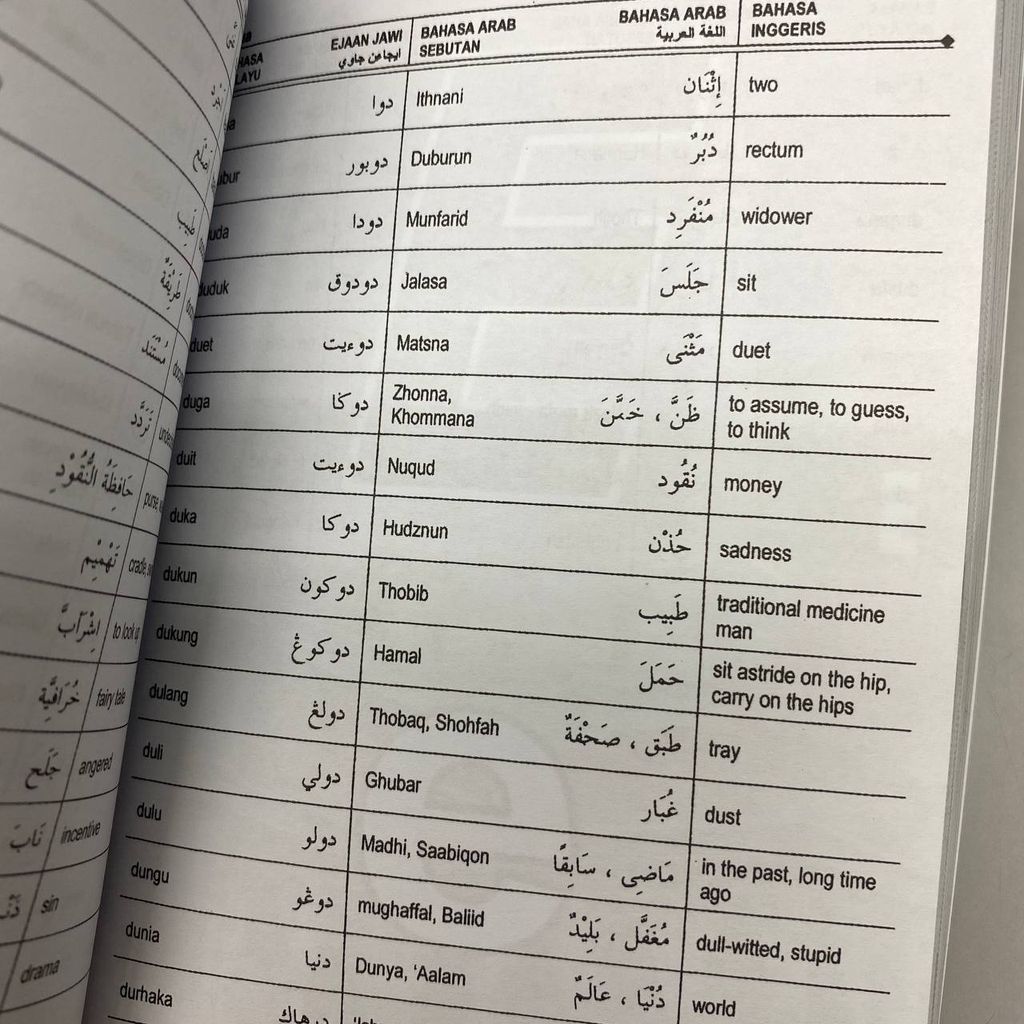 EJAAN JAWI BAHASA ARAB BAHASA ARAB BAHASA
ايجاءن جاوي SEBUTAN اللغة العربية INGGERIS
دوا Ithnani إِثْنَان two
دوبور Duburun دُبُرٌ rectum
دودا Munfarid مُنْفَرِد widower
duduk دودوق Jalasa جَلَسَ sit
duet دوءيت Matsna مَثْنَى duet
duga دوݢا Zhonna, Khommana ظَنَّ ، خَمَّنَ to assume, to guess, to think
duit دوءيت Nuqud نُقُود money
duka دوكا Hudznun حُذْن sadness
dukun دوكون Thobib طَبِيب traditional medicine man
dukung دوكوڠ Hamal حَمَلَ sit astride on the hip, carry on the hips
dulang دولڠ Thobaq, Shohfah طَبَق ، صَحْفَةٌ tray
duli دولي Ghubar غُبَار dust
dulu دولو Madhi, Saabiqon مَاضِى ، سَابِقًا in the past, long time ago
dungu دوڠو mughaffal, Baliid مُغَفَّل ، بَلِيْدٌ dull-witted, stupid
dunia دنيا Dunya, ‘Aalam دُنْيَا ، عَالَمٌ world
durhaka درهاك
حَافِظَةُ النُّقُوْدِ purse
تَهْمِيْم cradle
to look up
خُرَافِيَّة fairy tale
angered
incentive
sin
drama